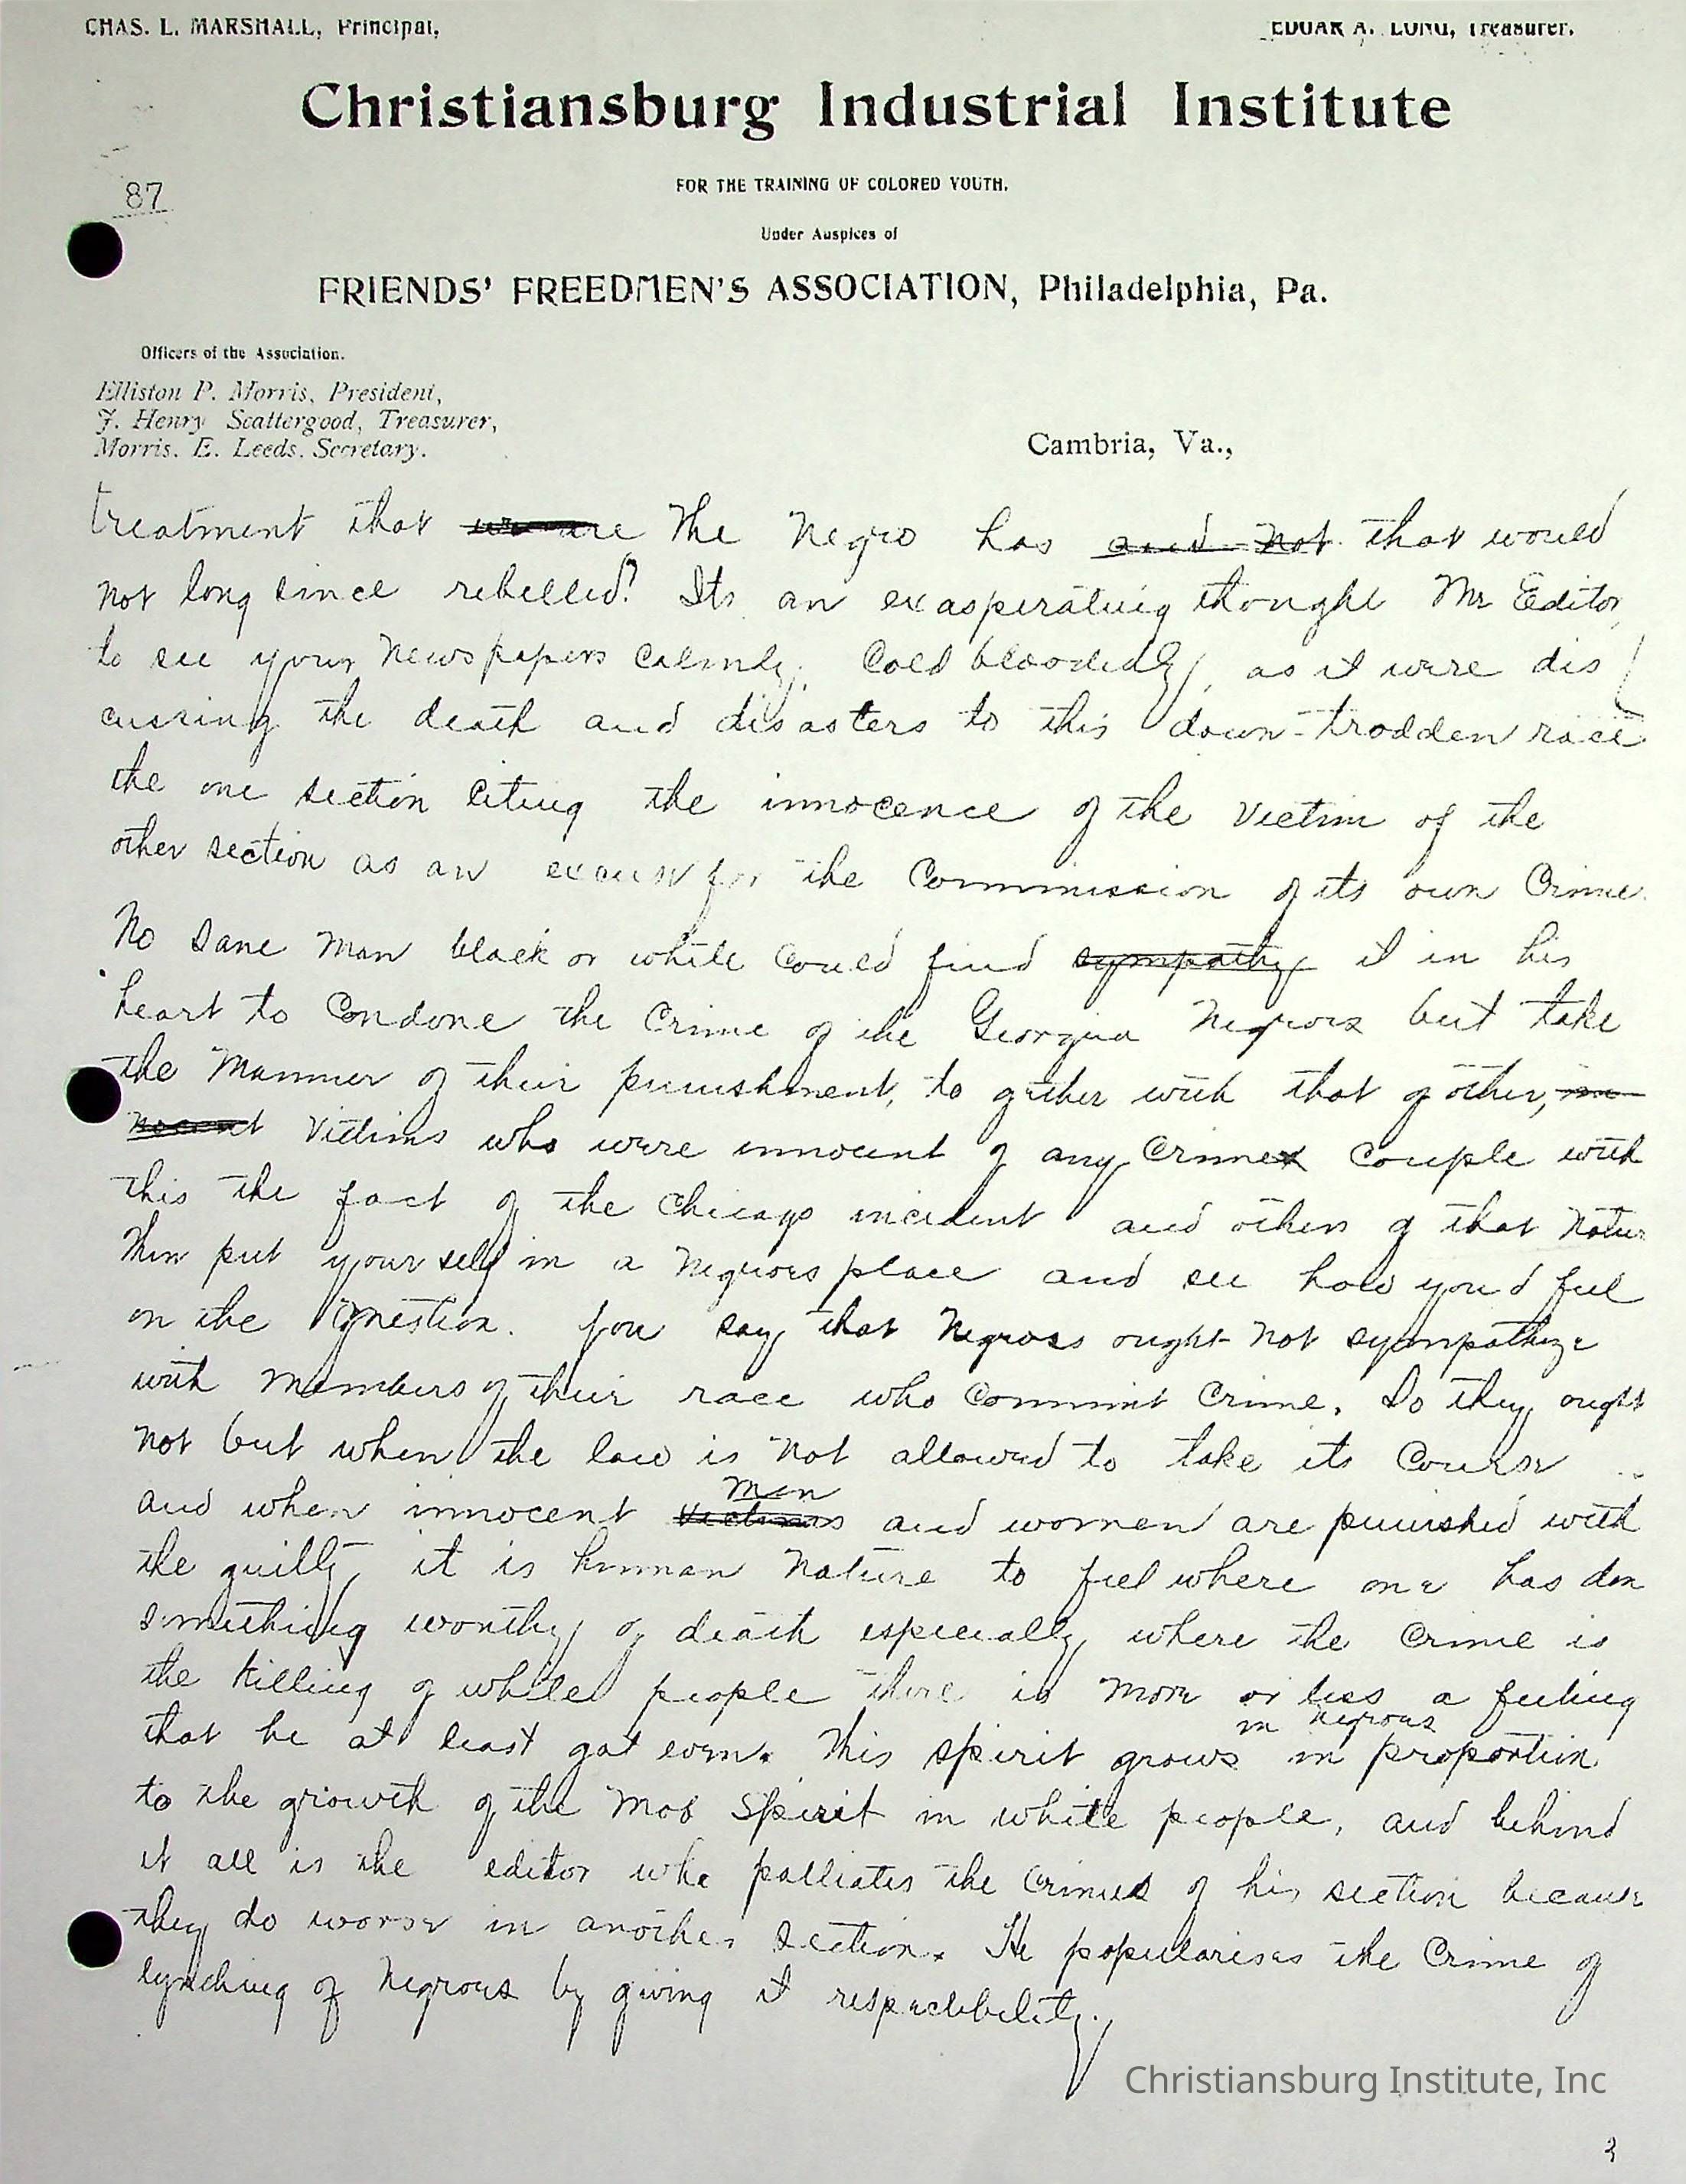 CHAS. L. MARSHALL, Principal,
EDGAR A. LONG, Treasurer.
Christiansburg Industrial Institute
FOR THE TRAINING OF COLORED YOUTH.
87
Under Auspices of
FRIENDS' FREEDMEN'S ASSOCIATION, Philadelphia, Pa.
Officers of the Association.
Elliston P. Morris, President,
J. Henry Scattergood, Treasurer,
Morris. E. Leeds. Secretary.
Cambria, Va.,
treatment that The Negro has and not that would
not long since rebelled? Its an exasperating thought Mr Editor,
to see your Newspapers calmly, Cold bloodedly, as it were dis
cussing the death and disasters to this down-trodden race
the one section citing the innocence of the Victim of the
other section as an excuse for the Commission of its own Crime.
No Sane Man black or white could find sympathy it in his
heart to Condone the Crime of the Georgia Negroes but take
the Manner of their punishment, to gether with that of other, in
nocent Victims who were innocent of any Crime Couple with
this the fact of the Chicago incident and others of that Natur
Then put your self in a Negroes place and see how you'd feel
on the Question. You say that Negroes ought not sympathize
with Members of their race who Commit Crime. So they ought
not but when the law is not allowed to take its Course
and when innocent victims Men and women are punished with
the guilty, it is human Nature to feel where one has don
something worthy of death especially where the Crime is
the killing of white people there is More or less a feeling
that he at least got even. This spirit grows in Negroes in proportion
to the growth of the Mob Spirit in white people, and behind
it all is the editor who palliates the Crimes of his section because
they do worse in another Section. He popularises the Crime of
lynching of Negroes by giving it respectibility.
Christiansburg Institute, Inc
3